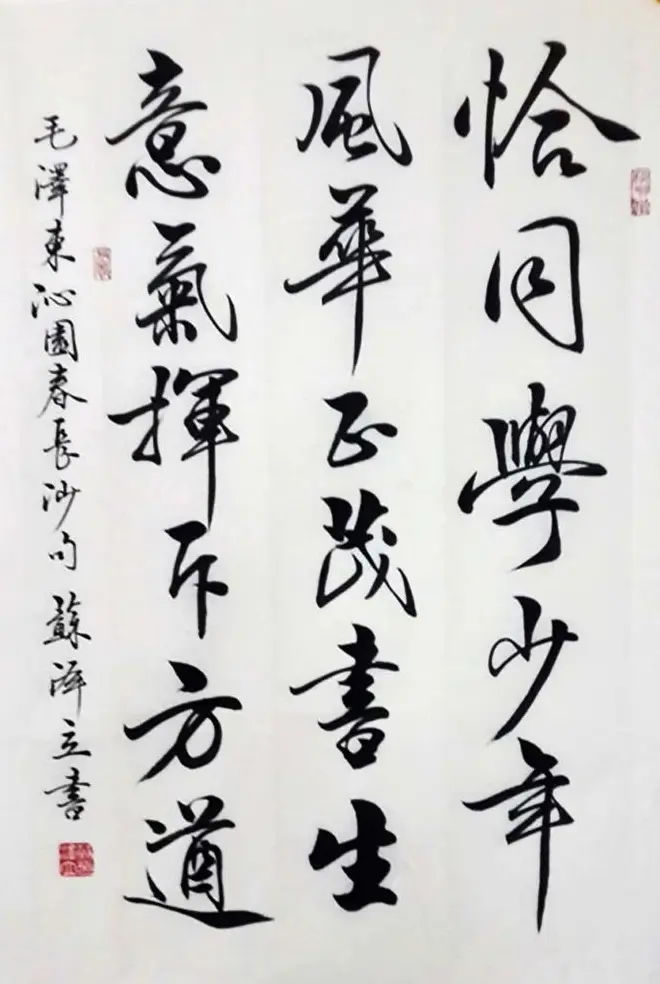 恰同學少年
風華正茂書生
意氣揮斥方遒
毛澤東沁園春長沙句 蘇泽立書